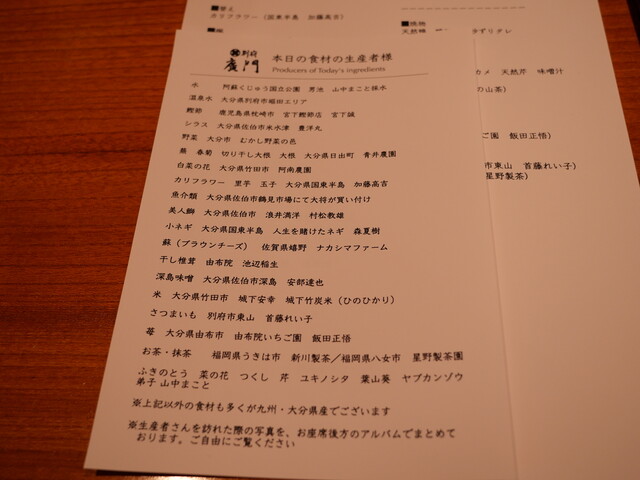 ■替え
カリフラワー（国東半島　加藤高吉）
別府
廣門
本日の食材の生産者様
Producers of Today's ingredients
水　阿蘇くじゅう国立公園　男池　山中まこと採水
温泉水　大分県別府市堀田エリア
鰹節　鹿児島県枕崎市　宮下鰹節店　宮下誠
シラス　大分県佐伯市米水津　豊洋丸
野菜　大分市　むかし野菜の邑
蕪　春菊　切り干し大根　大根　大分県日出町　青井農園
白菜の花　大分県竹田市　阿南農園
カリフラワー　里芋　玉子　大分県国東半島　加藤高吉
魚介類　大分県佐伯市鶴見市場にて大将が買い付け
美人鰤　大分県佐伯市　浪井満洋　村松教雄
小ネギ　大分県国東半島　人生を賭けたネギ　森夏樹
蘇（ブラウンチーズ）　佐賀県嬉野　ナカシマファーム
干し椎茸　由布院　池辺稲生
深島味噌　大分県佐伯市深島　安部達也
米　大分県竹田市　城下安幸　城下竹炭米（ひのひかり）
さつまいも　別府市東山　首藤れい子
苺　大分県由布市　由布院いちご園　飯田正悟
お茶・抹茶　福岡県うきは市　新川製茶／福岡県八女市　星野製茶園
ふきのとう　菜の花　つくし　芹　ユキノシタ　葉山葵　ヤブカンゾウ
弟子 山中まこと
※上記以外の食材も多くが九州・大分県産でございます
※生産者さんを訪れた際の写真を、お座席後方のアルバムでまとめて
おります。ご自由にご覧ください
天然
カメ　天然芹　味噌汁
の山茶）
ご園　飯田正悟）
市東山　首藤れい子）
星野製茶）